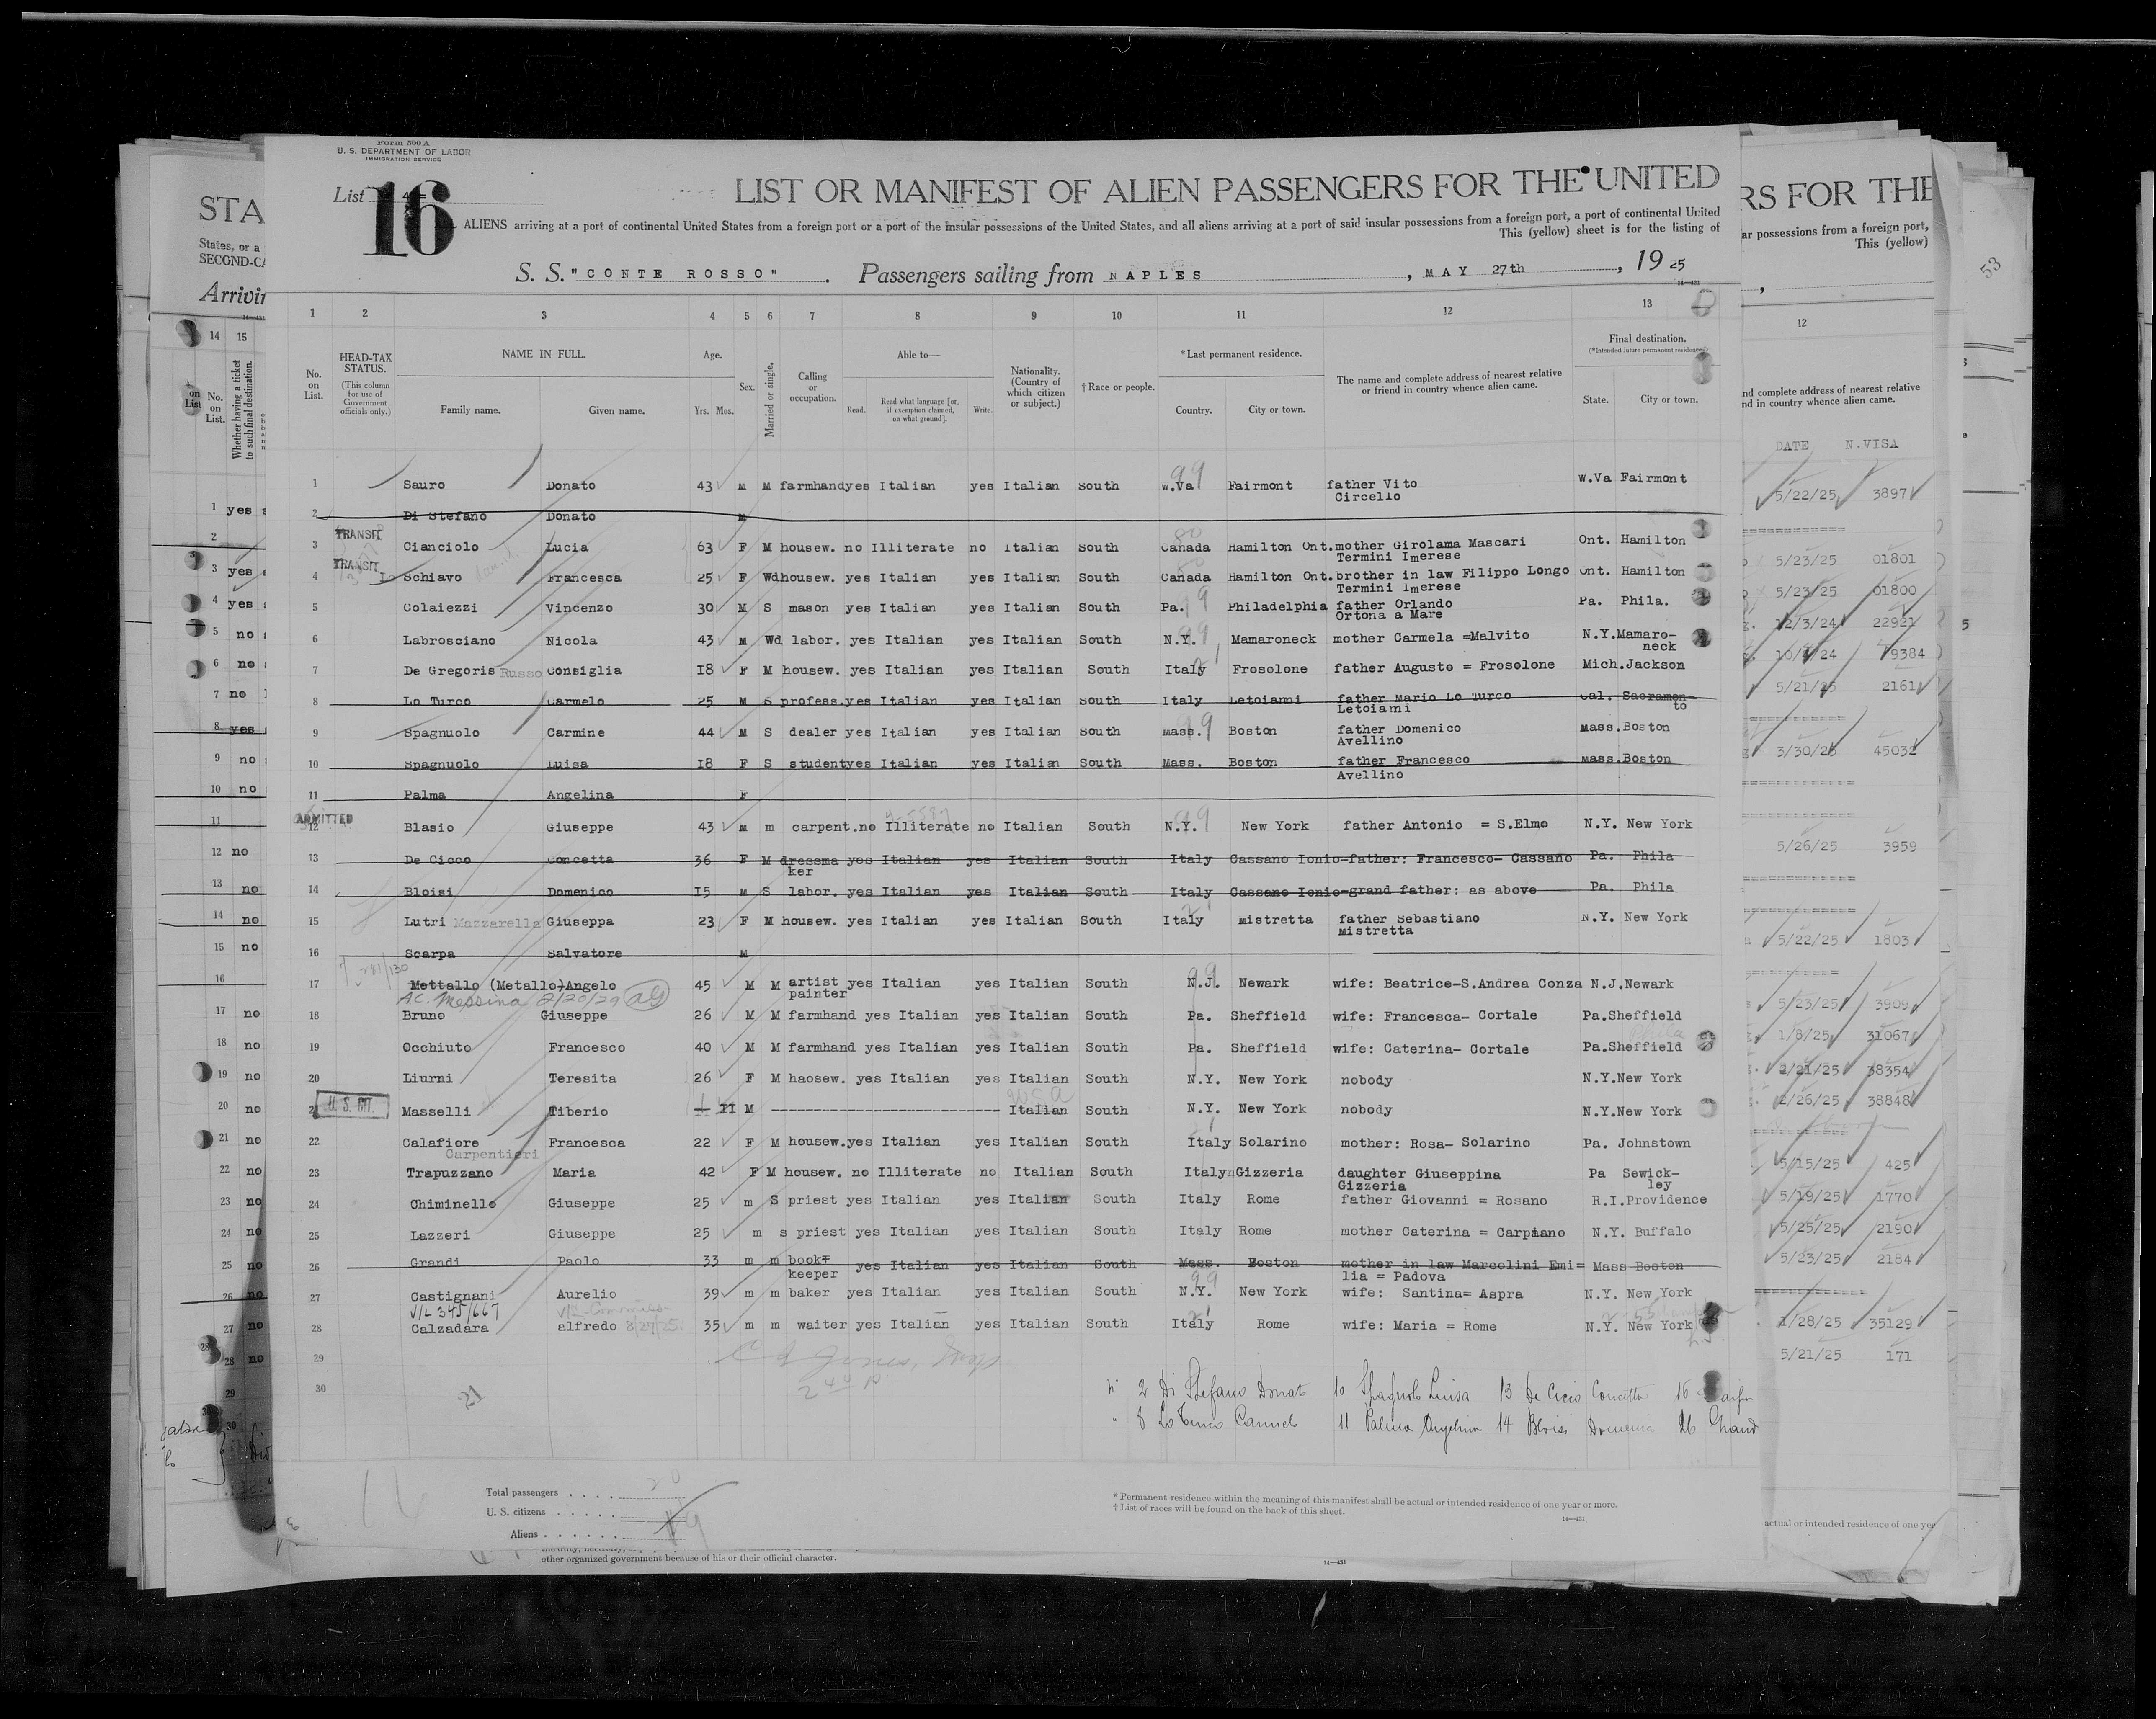 Form 500 A
U. S. DEPARTMENT OF LABOR
IMMIGRATION SERVICE
List 16
LIST OR MANIFEST OF ALIEN PASSENGERS FOR THE UNITED
ALIENS arriving at a port of continental United States from a foreign port or a port of the insular possessions of the United States, and all aliens arriving at a port of said insular possessions from a foreign port, a port of continental United
This (yellow) sheet is for the listing of
S. S. "CONTE ROSSO". Passengers sailing from NAPLES, MAY 27th, 1925
1 2 3 4 5 6 7 8 9 10 11 12 13
No. on List.
HEAD-TAX STATUS. (This column for use of Government officials only.)
NAME IN FULL. Family name. Given name.
Age. Yrs. Mos.
Sex.
Married or single.
Calling or occupation.
Able to— Read. Read what language [or, if exemption claimed, on what ground]. Write.
Nationality. (Country of which citizen or subject.)
†Race or people.
*Last permanent residence. Country. City or town.
The name and complete address of nearest relative or friend in country whence alien came.
Final destination. (*Intended future permanent residence) State. City or town.
1 Sauro Donato 43 M M farmhand yes Italian yes Italian South W.Va Fairmont father Vito Circello W.Va Fairmont
2 Di Stefano Donato M
3 TRANSIT Cianciolo Lucia 63 F M housew. no Illiterate no Italian South Canada Hamilton Ont. mother Girolama Mascari Termini Imerese Ont. Hamilton
4 TRANSIT Lo Schiavo Francesca 25 F Wd housew. yes Italian yes Italian South Canada Hamilton Ont. brother in law Filippo Longo Termini Imerese Ont. Hamilton
5 Colaiezzi Vincenzo 30 M S mason yes Italian yes Italian South Pa. Philadelphia father Orlando Ortona a Mare Pa. Phila.
6 Labrosciano Nicola 43 M Wd labor. yes Italian yes Italian South N.Y. Mamaroneck mother Carmela =Malvito N.Y. Mamaro-neck
7 De Gregoris Russo Consiglia 18 F M housew. yes Italian yes Italian South Italy Frosolone father Augusto = Frosolone Mich. Jackson
8 Lo Turco Carmelo 25 M S profess. yes Italian yes Italian South Italy Letoianni father Mario Lo Turco Letoiami Cal. Sacramen-to
9 Spagnuolo Carmine 44 M S dealer yes Italian yes Italian South Mass. Boston father Domenico Avellino Mass. Boston
10 Spagnuolo Luisa 18 F S student yes Italian yes Italian South Mass. Boston father Francesco Avellino Mass. Boston
11 Palma Angelina F
12 ADMITTED Blasio Giuseppe 43 M m carpent. no Illiterate no Italian South N.Y. New York father Antonio = S.Elmo N.Y. New York
13 De Cicco Concetta 36 F M dressma ker yes Italian yes Italian South Italy Cassano Ionio-father: Francesco- Cassano Pa. Phila
14 Bloisi Domenico 15 M S labor. yes Italian yes Italian South Italy Cassano Ionio-grand father: as above Pa. Phila
15 Lutri Mazzarella Giuseppa 23 F M housew. yes Italian yes Italian South Italy Mistretta father Sebastiano Mistretta N.Y. New York
16 Scarpa Salvatore M
17 Mettallo (Metallo) Angelo 45 M M artist painter yes Italian yes Italian South N.J. Newark wife: Beatrice-S.Andrea Conza N.J. Newark
A.C. Messina 2/20/29
18 Bruno Giuseppe 26 M M farmhand yes Italian yes Italian South Pa. Sheffield wife: Francesca- Cortale Pa. Sheffield
19 Occhiuto Francesco 40 M M farmhand yes Italian yes Italian South Pa. Sheffield wife: Caterina- Cortale Pa. Sheffield
20 Liurni Teresita 26 F M haosew. yes Italian yes Italian South N.Y. New York nobody N.Y. New York
21 U. S. CIT. Masselli Tiberio 11 M Italian South N.Y. New York nobody N.Y. New York
22 Calafiore Carpentieri Francesca 22 F M housew. yes Italian yes Italian South Italy Solarino mother: Rosa- Solarino Pa. Johnstown
23 Trapuzzano Maria 42 F M housew. no Illiterate no Italian South Italy Gizzeria daughter Giuseppina Gizzeria Pa Sewick-ley
24 Chiminello Giuseppe 25 m S priest yes Italian yes Italian South Italy Rome father Giovanni = Rosano R.I. Providence
25 Lazzeri Giuseppe 25 m s priest yes Italian yes Italian South Italy Rome mother Caterina = Carpiano N.Y. Buffalo
26 Grandi Paolo 33 m m book keeper yes Italian yes Italian South Mass. Boston mother in law Marcolini Emi=lia = Padova Mass Boston
27 Castignani Aurelio 39 m m baker yes Italian yes Italian South N.Y. New York wife: Santina= Aspra N.Y. New York
V/L 345/667
28 Calzadara alfredo 35 m m waiter yes Italian yes Italian South Italy Rome wife: Maria = Rome N.Y. New York
29
30
2 Di Stefano Donato 10 Spagnolo Luisa 13 De Cicco Concetta 16
8 Lo Turco Carmelo 11 Palma Angelina 14 Bloisi Domenico 26 Grand
Total passengers
U. S. citizens
Aliens
* Permanent residence within the meaning of this manifest shall be actual or intended residence of one year or more.
† List of races will be found on the back of this sheet.
14—431
other organized government because of his or their official character.
STA
States, or a
SECOND-CA
Arrivin
14 15
No. on List.
Whether having a ticket to such final destination.
RS FOR THE
ar possessions from a foreign port,
This (yellow)
12
nd complete address of nearest relative
nd in country whence alien came.
DATE N.VISA
5/22/25 3897
5/23/25 01801
5/23/25 01800
12/3/24 22921
5/21/25 2161
3/30/25 45032
5/26/25 3959
5/22/25 1803
5/23/25 3909
1/8/25 31067
2/21/25 38354
2/26/25 38848
5/15/25 425
5/19/25 1770
5/25/25 2190
5/23/25 2184
1/28/25 35129
5/21/25 171
actual or intended residence of one yea
53